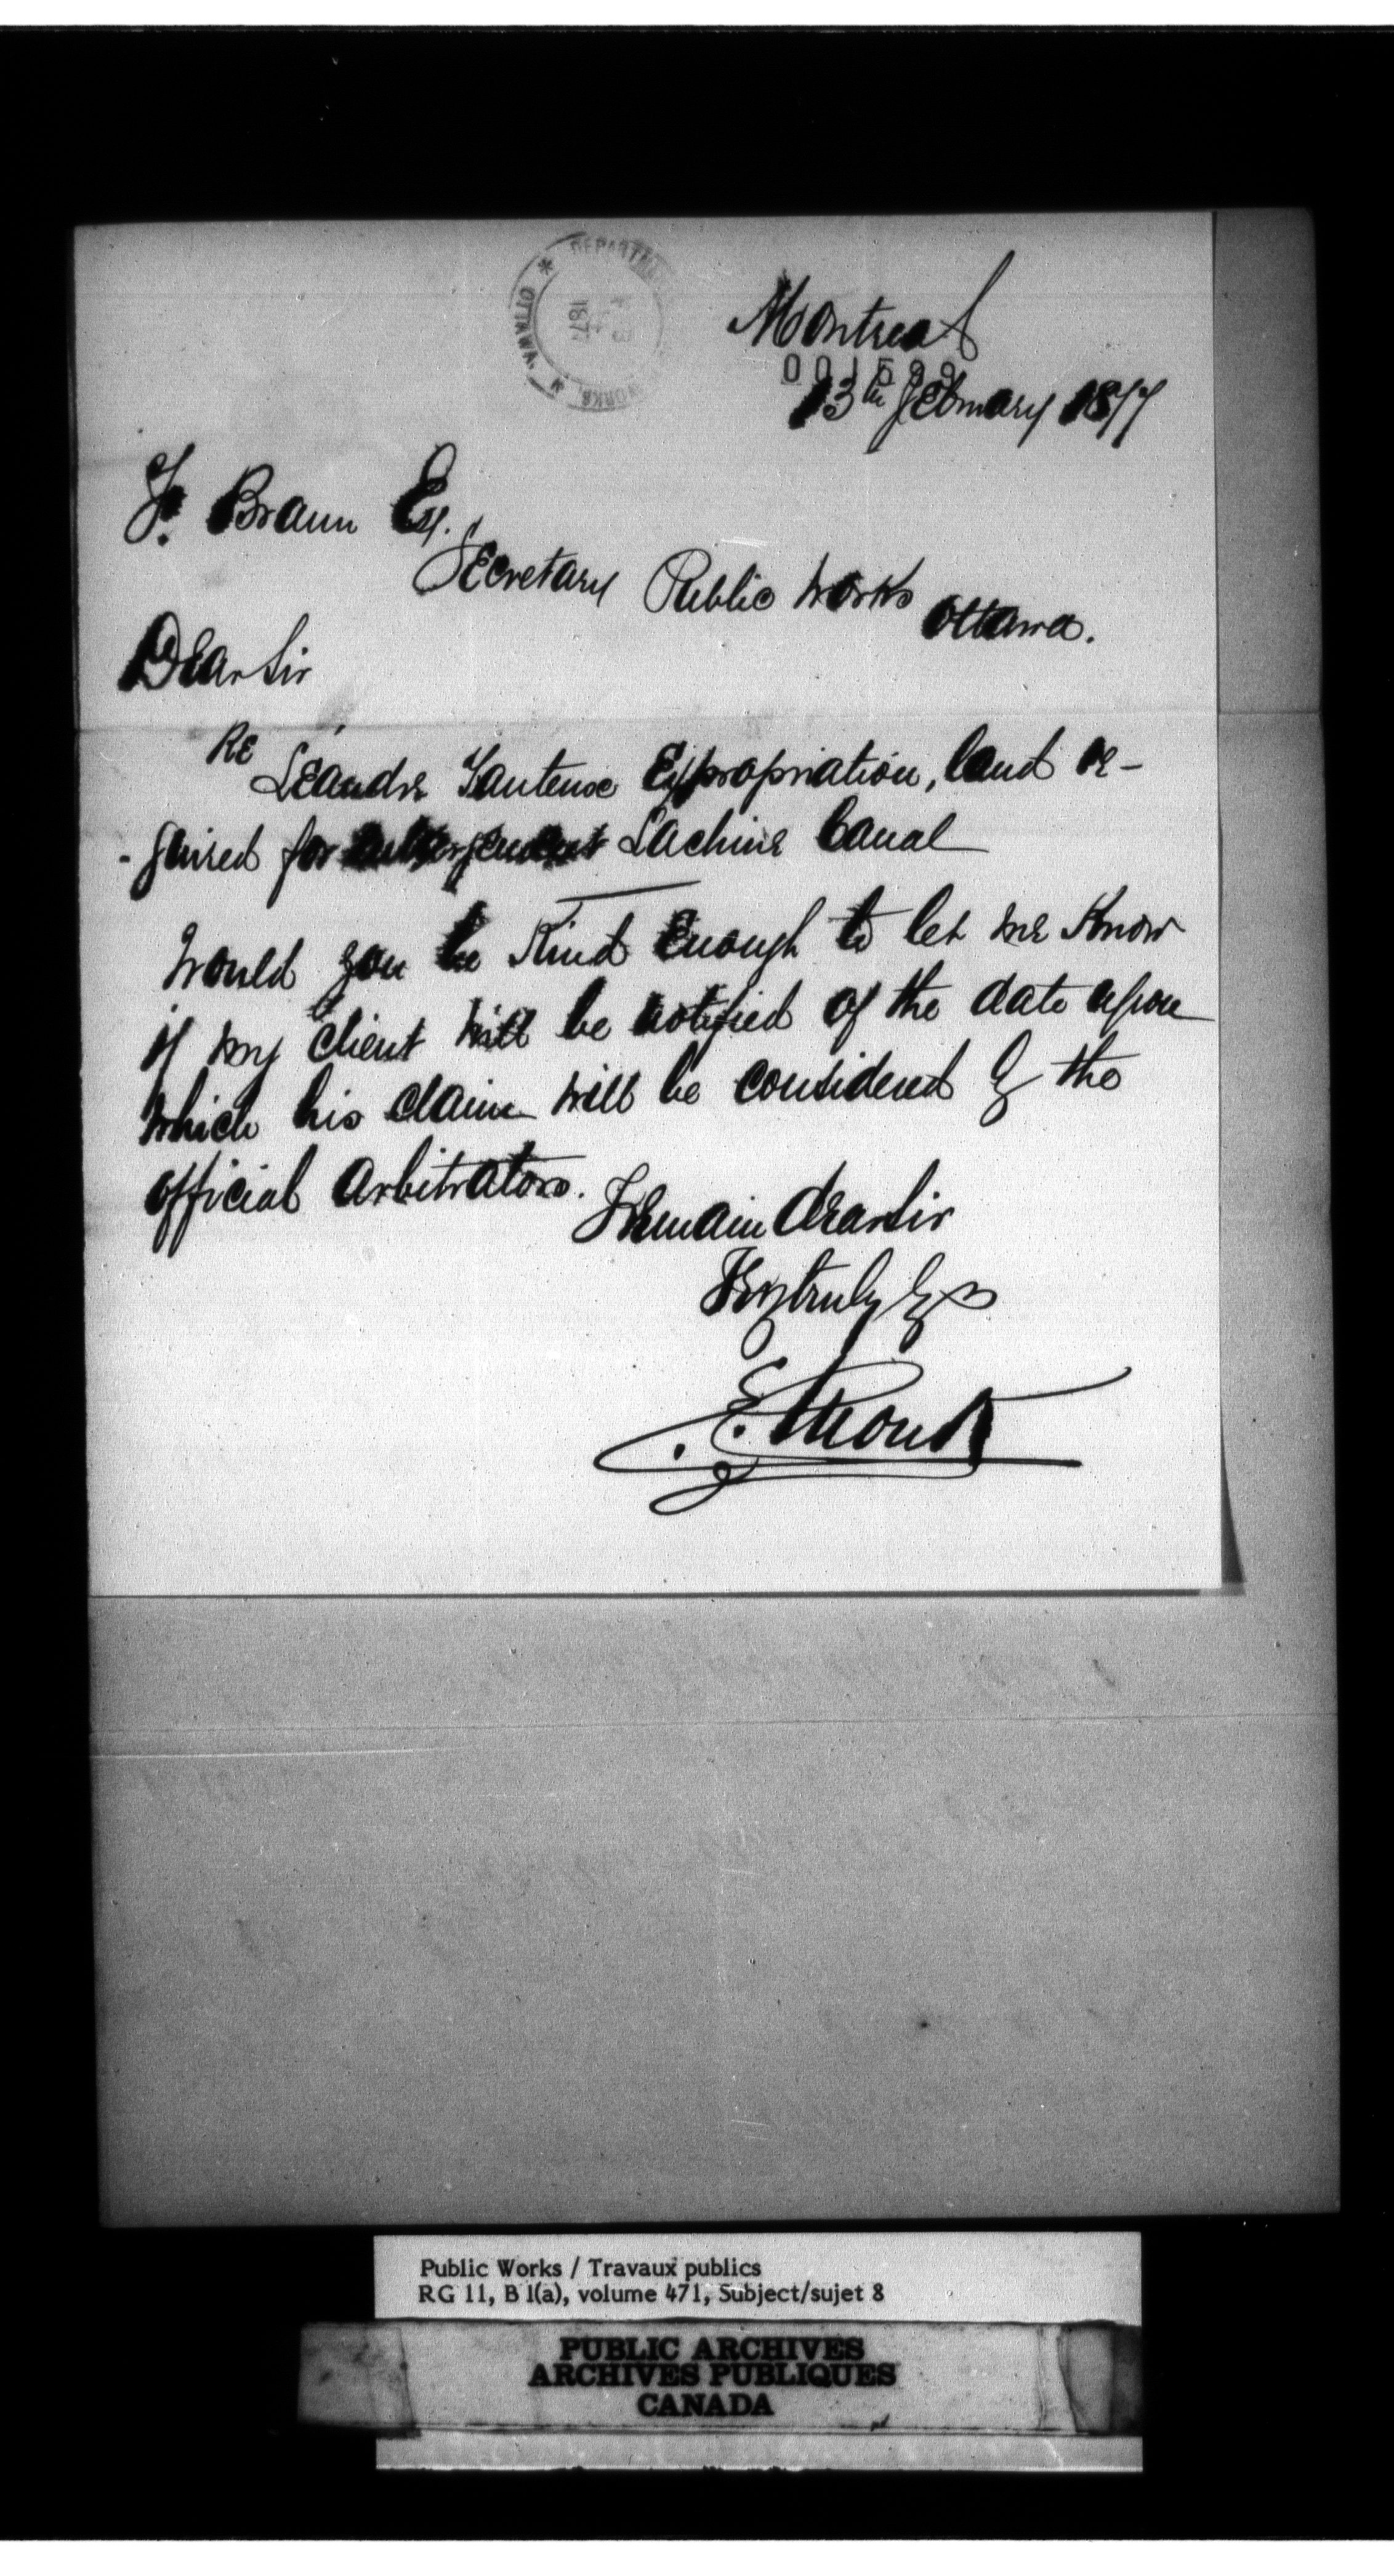 DEPARTM
WORKS
OTTAWA
1877
Montreal
13th February 1877
F. Braun Esq.
Secretary Public Works Ottawa.
Dear Sir
Re Léandre Expropriation, land re-
-quired for Lachine Canal
Would you be Kind Enough to let me Know
if my client will be notified of the date upon
which his claim will be considered by the
official Arbitrators.
I Remain dear Sir
Very truly Yrs
E. Monk
Public Works / Travaux publics
RG 11, B 1(a), volume 471, Subject/sujet 8
PUBLIC ARCHIVES
ARCHIVES PUBLIQUES
CANADA